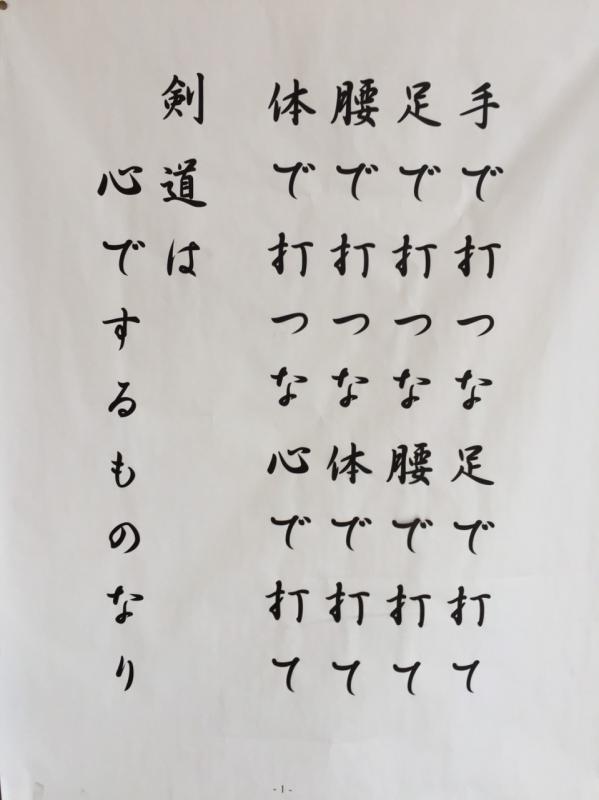 手で打つな足で打て
足で打つな腰で打て
腰で打つな体で打て
体で打つな心で打て
剣道は
心でするものなり
- 1 -